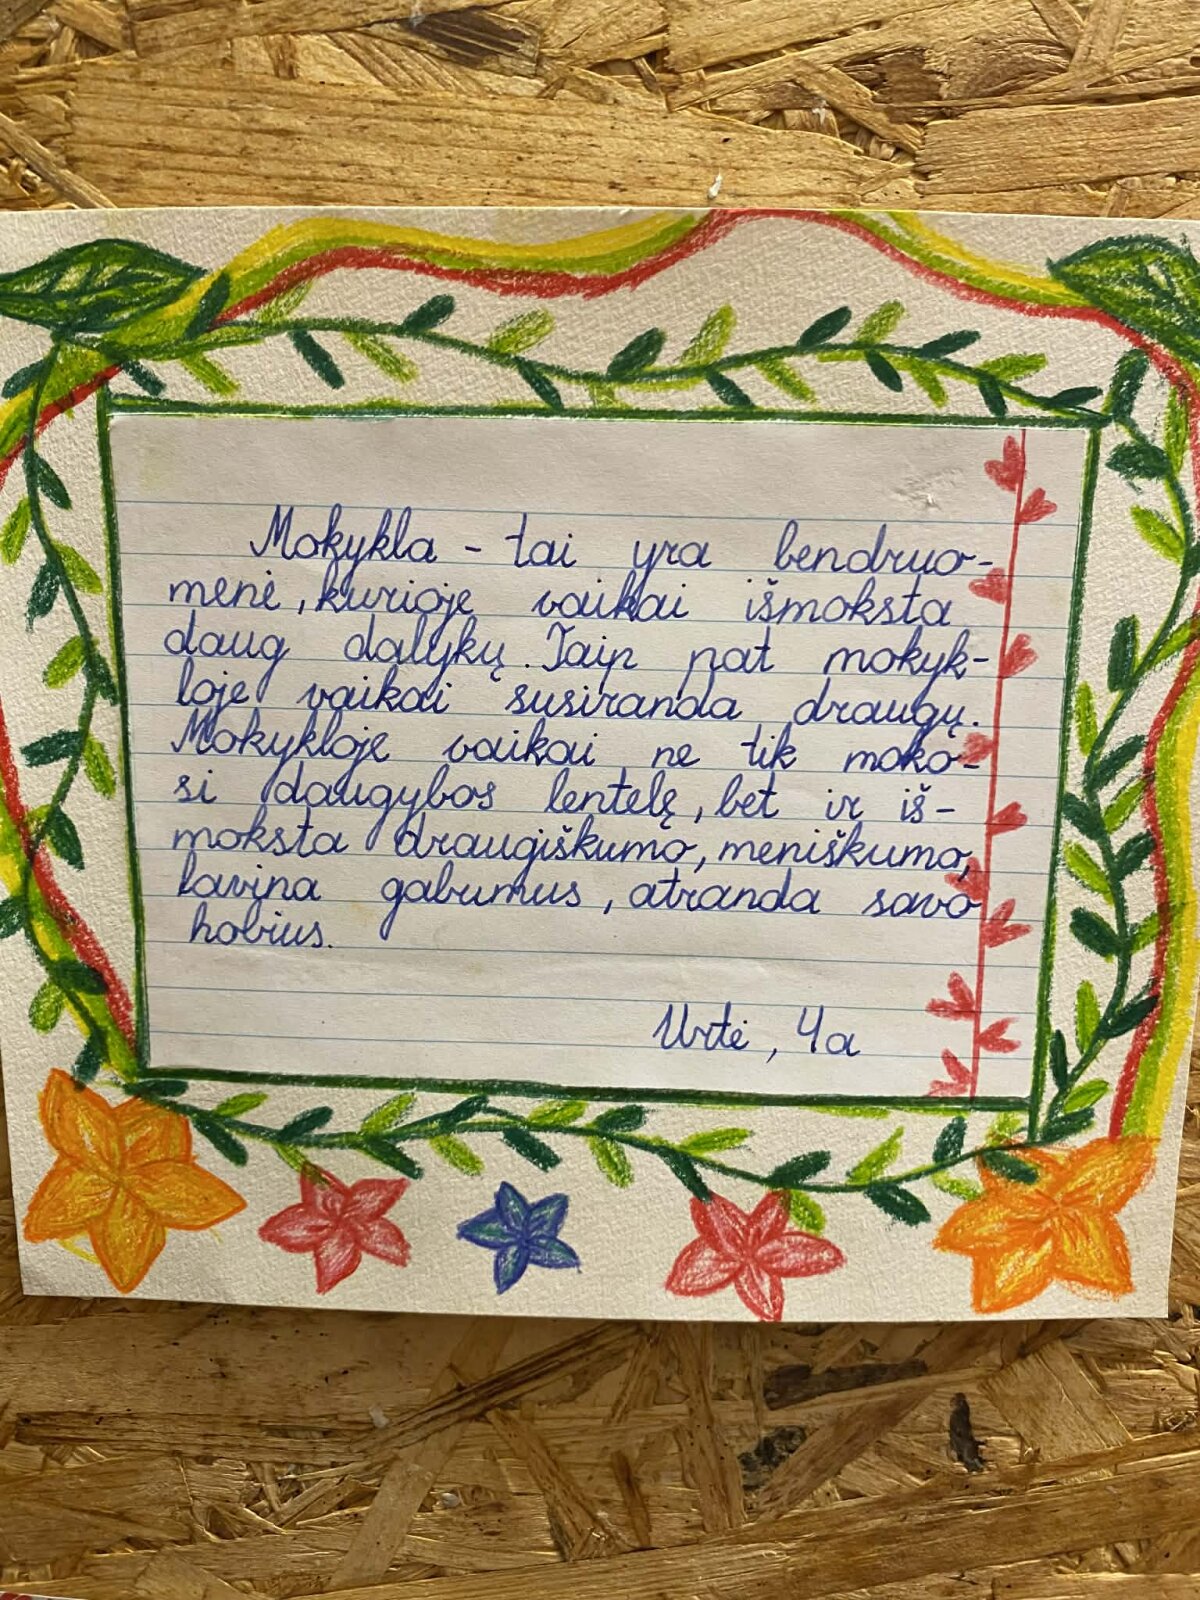 Mokykla - tai yra bendruo-
menė, kurioje vaikai išmoksta
daug dalykų. Taip pat mokyk-
loje vaikai susiranda draugų.
Mokykloje vaikai ne tik moko-
si daugybos lentelę, bet ir iš-
moksta draugiškumo, meniškumo,
lavina gabumus, atranda savo
hobius.
Urtė, 4a